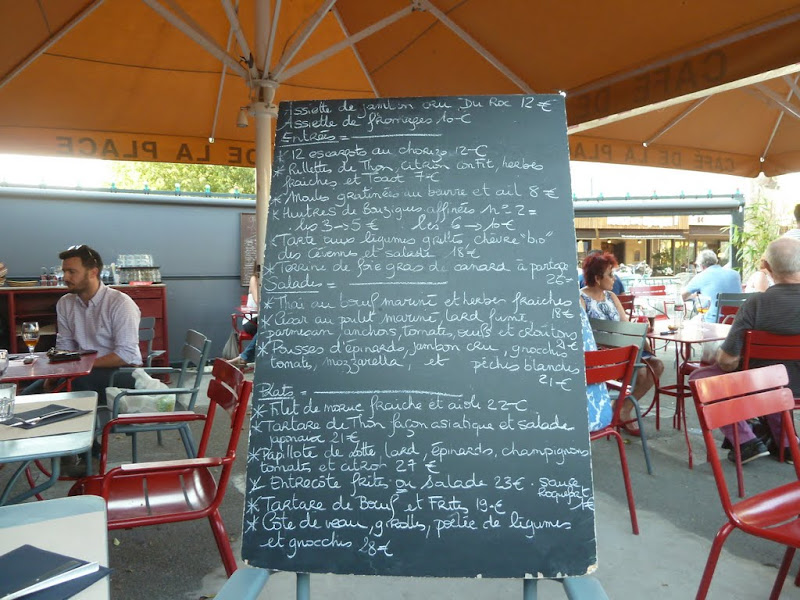 CAFE DE
DE LA PLACE
CAFÉ DE LA PLACE
Assiette de jambon cru Du Roc 12 €
Assiette de fromages 10 €
Entrées =
* 12 escargots au chorizo 12 €
* Rillettes de Thon, citron confit, herbes
fraîches et Toast 7 €
* Moules gratinées au beurre et ail 8 €
* Huîtres de Bouzigues affinées n° 2 =
les 3 → 5 € les 6 → 10 €
* Tarte aux légumes grillés, chèvre "bio"
des Cévennes et salade 18 €
* Terrine de foie gras de canard à partager
26 -
Salades =
* Thaï au bœuf mariné et herbes fraîches
18 €
* César au poulet mariné, lard fumé,
parmesan, anchois, tomates, œufs et croûtons
21 €
* Pousses d'épinards, jambon cru, gnocchis
tomate, mozzarella, et pêches blanches
21 €
Plats =
* Filet de morue fraîche et aïoli 22 €
* Tartare de Thon façon asiatique et salade
21 €
* Papillote de Lotte, lard, épinards, champignons
tomates et citron 27 €
* Entrecôte frites ou Salade 23 € - sauce
Roquefort
1 €
* Tartare de Bœuf et Frites 19 €
* Côte de veau, girolles, poêlée de légumes
et gnocchis 28 €